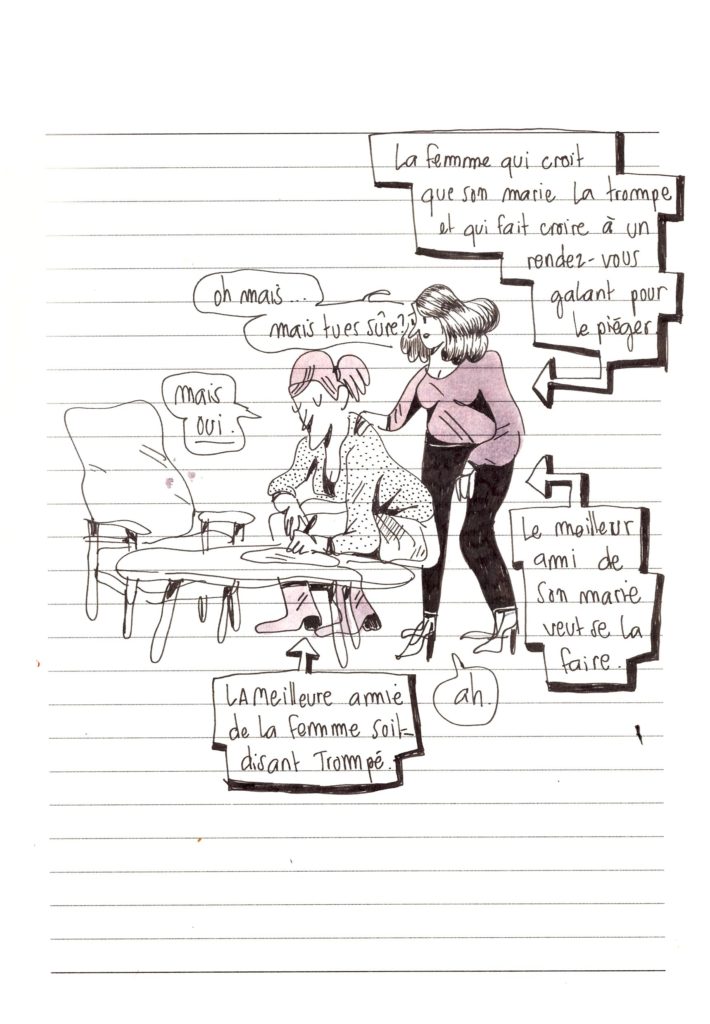 La femme qui croit
que son marie la trompe
et qui fait croire à un
rendez-vous
galant pour
le piéger
oh mais...
mais tu es sûre?
mais
oui.
Le meilleur
ami de
son marie
veut se la
faire.
LA meilleure amie
de la femme soit-
disant Trompé.
ah.